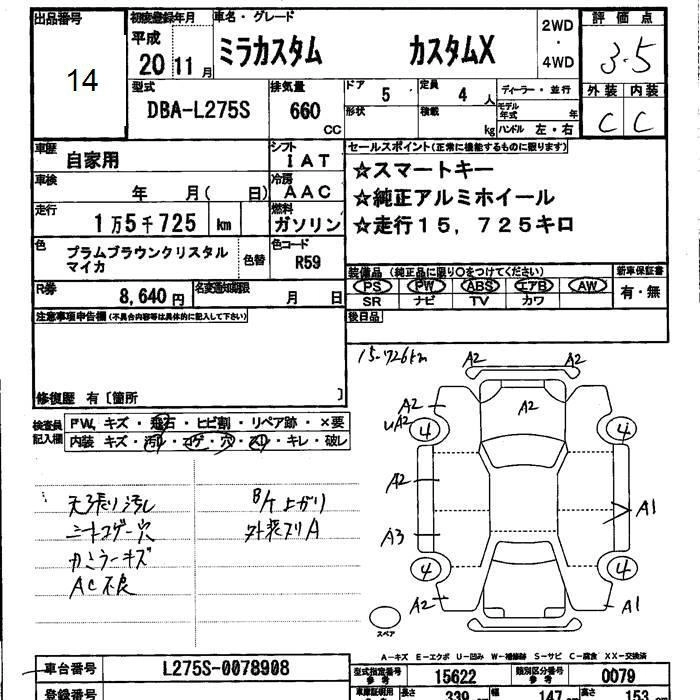 出品番号
14
初度登録年月
平成
20 11 月
車名・グレード
ミラカスタム カスタムX
2WD
・
4WD
評価点
3.5
外装 内装
C C
型式
DBA-L275S
排気量
660
CC
ドア
5
定員
4 人
形状
積載
kg
ディーラー・並行
モデル年式 年
ハンドル 左・右
車歴
自家用
シフト
IAT
車検
年 月( 日)
冷房
AAC
走行
1万5千725 km
燃料
ガソリン
色
プラムブラウンクリスタル
マイカ
色替
色コード
R59
R券
8,640 円
名変通知期限
月 日
セールスポイント(正常に機能するものに限ります)
☆スマートキー
☆純正アルミホイール
☆走行15,725キロ
装備品 (純正品に限り○をつけてください)
PS PW ABS エアB AW
SR ナビ TV カワ
新車保証書
有・無
後日品
注意事項申告欄(不具合内容等は具体的に記入して下さい)
修復歴 有〔箇所 〕
検査員
記入欄
FW. キズ・飛石・ヒビ割・リペア跡・×要
内装 キズ・汚レ・コゲ・穴・スレ・キレ・破レ
天張り汚し
シートコゲ穴
カミラーキズ
AC不良
B/ケ上がり
外装スリA
15.726km
A2 A2
A2
A2
UA2
4 4
A2
A1
A3
4 4
A2
A1
スペア
A-キズ E-エクボ U-凹み W-補修跡 S-サビ C-腐食 XX-交換済
車台番号
L275S-0078908
型式指定番号
参考
15622
類別区分番号
参考
0079
登録番号
車庫証明用
長さ
339
幅
147
高さ
153